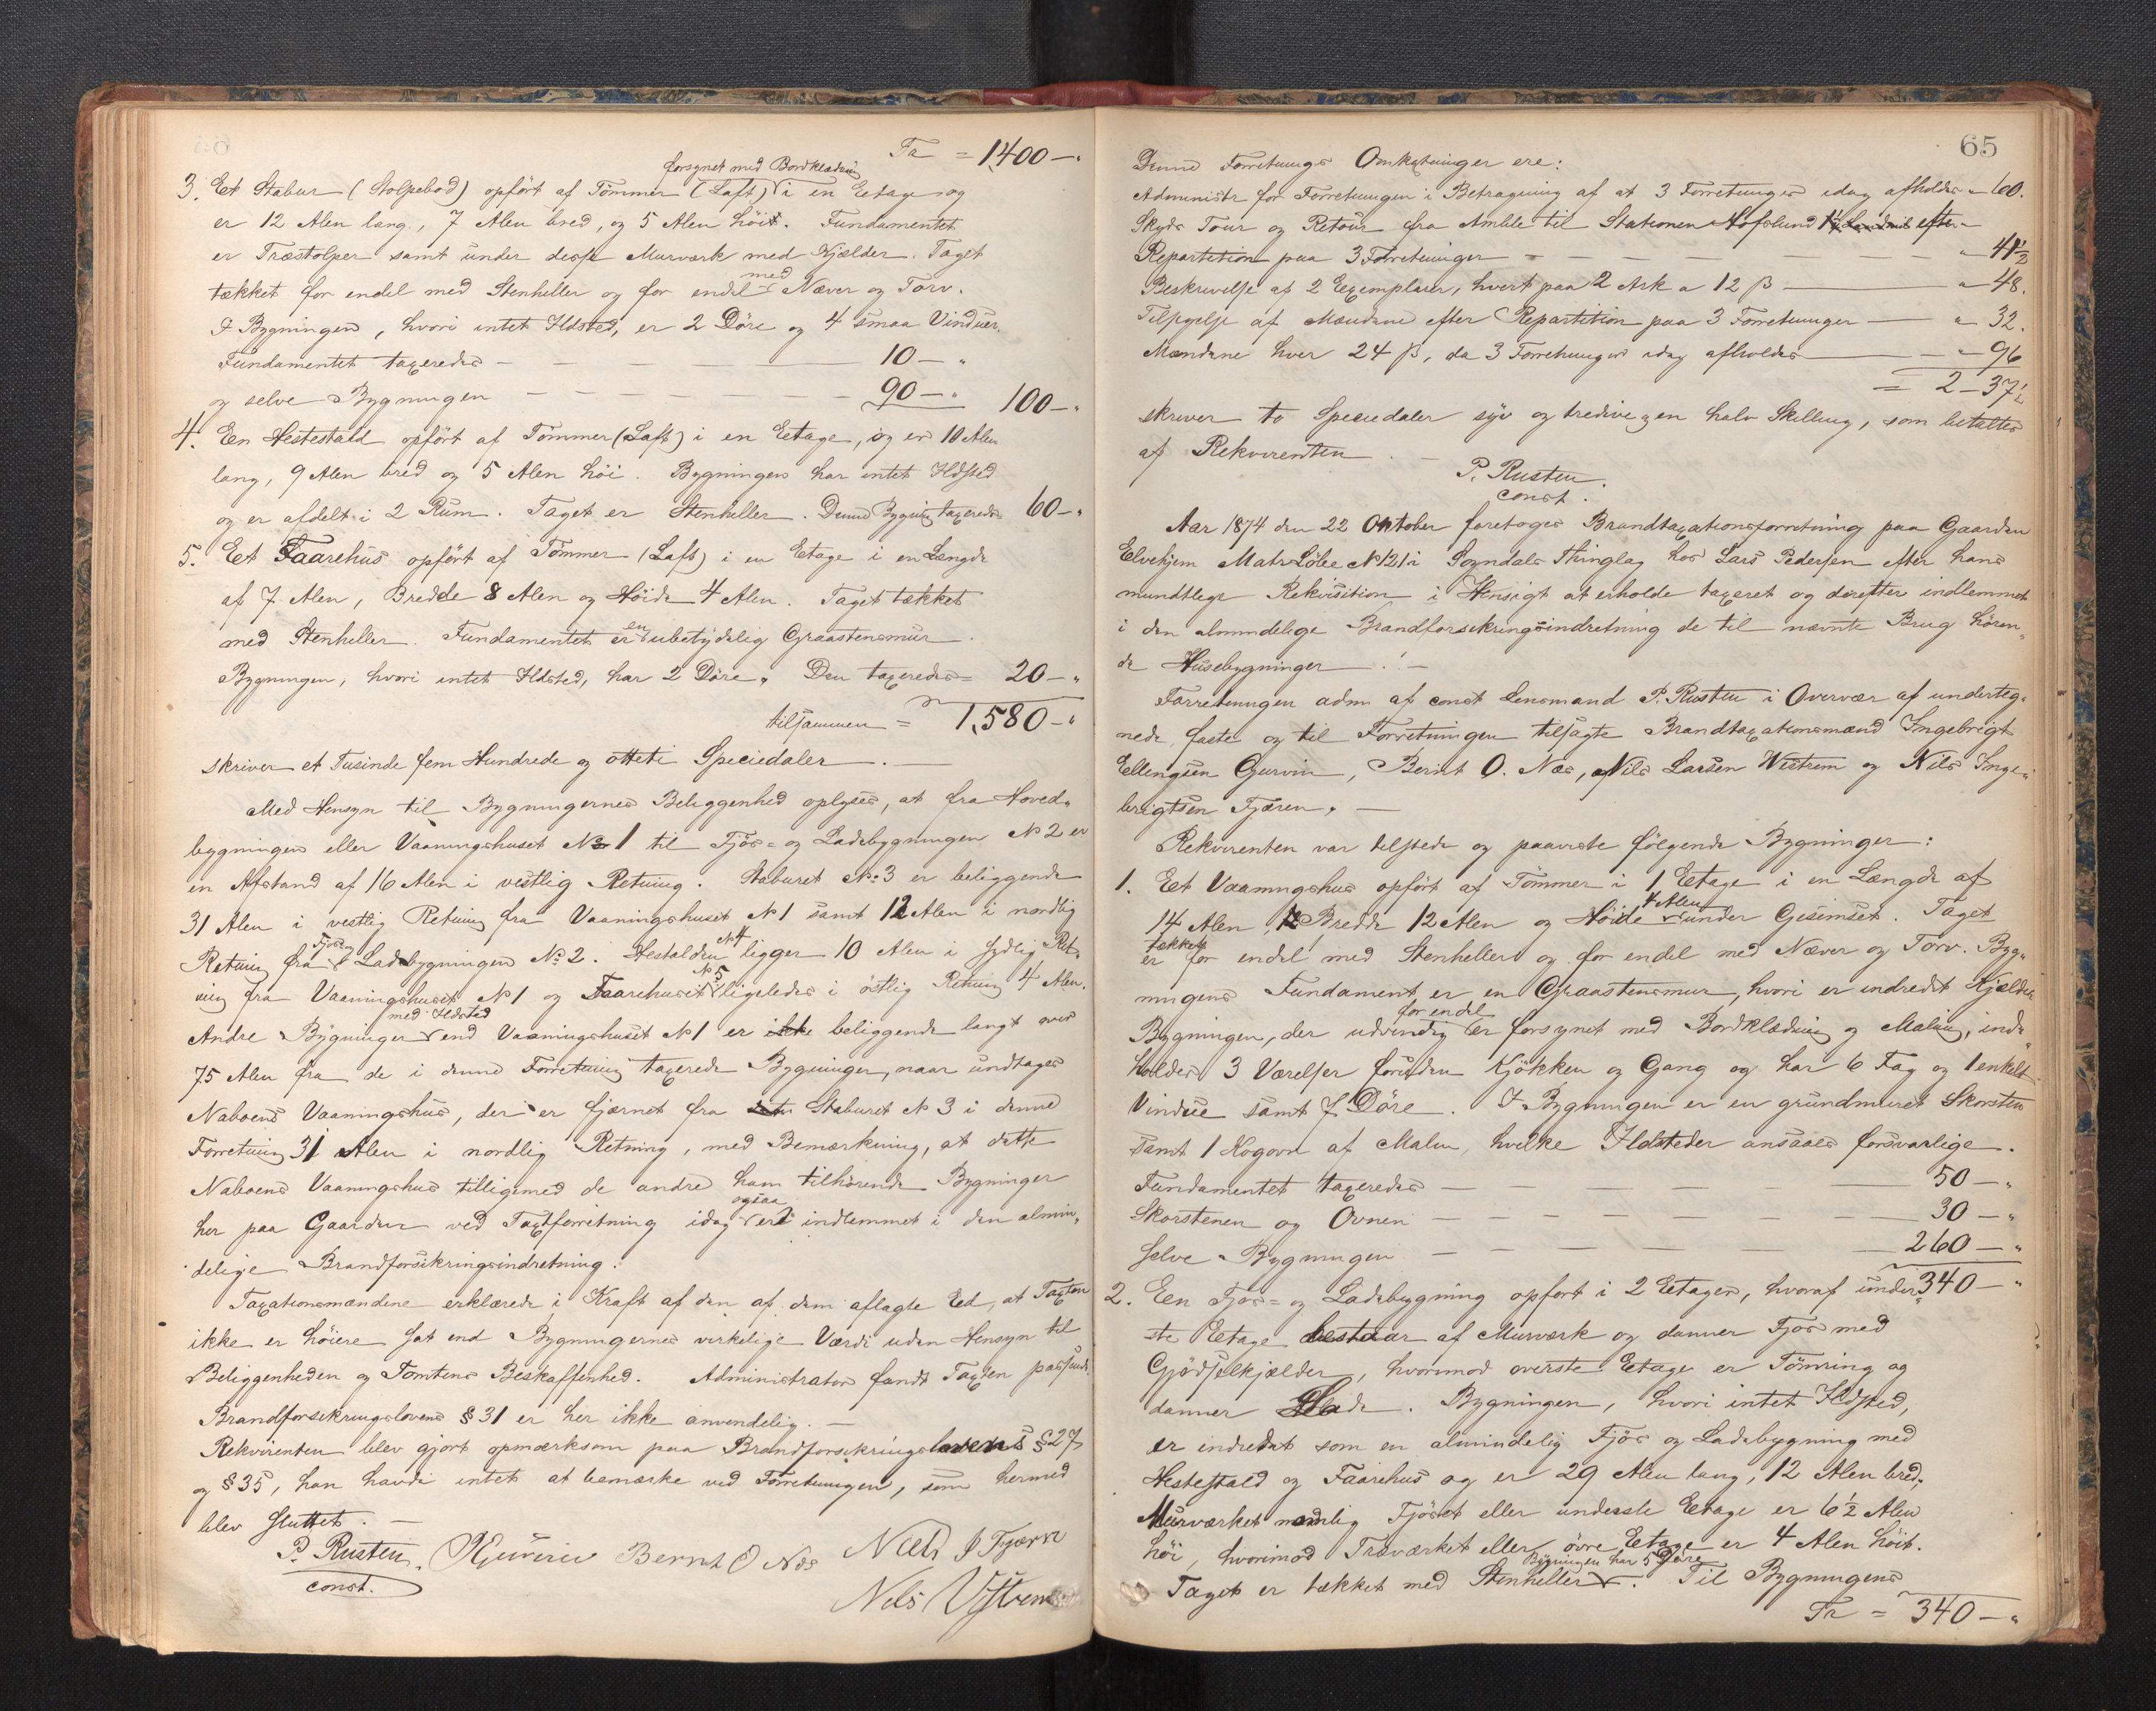 Tr = 1400 - "
forsynet med Bordklædn
3. Et Stabur (Stolpebod) opført af Tømmer (Laft) i en Eetage og
er 12 Alen lang, 7 Alen bred, og 5 Alen höit. Fundamentet
er Træstolper samt under disse Murværk med Kjælder. Taget
tækket for endel med Stenheller og for endel med Næver og Torv.
I Bygningen, hvori intet Ildsted, er 2 Döre og 4 smaa Vinduer.
Fundamentet taxeredes — 10 - "
og selve Bygningen — 90 - " 100 - "
4. Een Hestestald opfört af Tömmer (Laft) i en Eetage, og er 10 Alen
lang, 9 Alen bred og 5 Alen höi. Bygningen har intet Ildsted
og er afdelt i 2 Rum. Taget er Stenheller. Denne Bygning taxeredes 60 - "
5. Et Faarehus opfört af Tömmer (Laft) i en Etage i en Længde
af 7 Alen, Bredde 8 Alen og Höide 4 Alen. Taget tækket
med Stenheller. Fundamentet er en ubetydelig Graastensmur.
Bygningen, hvori intet Ildsted, har 2 Döre. Den taxeredes = 20 - "
tilsammen = 1,580 - "
skriver et Tusinde fem Hundrede og otteti Speciedaler. —
Med Hensyn til Bygningernes Beliggenhed oplyses, at fra Hoved-
bygningen eller Vaaningshuset No 1 til Fjös- og Ladebygningen No 2 er
en Afstand af 16 Alen i vestlig Retning. Staburet No 3 er beliggende
31 Alen i vestlig Retning fra Vaaningshuset No 1 samt 12 Alen i nordlig
Retning fra Fjös og Ladebygningen No 2. Hestalden No 4 ligger 10 Alen i sydlig Ret-
ning fra Vaaningshuset No 1 og Faarehuset No 5 ligeledes i östlig Retning 4 Alen.
Andre Bygninger med Ildsted end Vaaningshuset No 1 er ikke beliggende langt over
75 Alen fra de i denne Forretning taxerede Bygninger, naar undtages
Naboens Vaaningshus, der er fjærnet fra Staburet No 3 i denne
Forretning 31 Alen i nordlig Retning, med Bemærkning, at dette
Naboens Vaaningshus tilligemed de andre ham tilhörende Bygninger
her paa Gaarden ved Taxtforretning idag ogsaa er indlemmet i den almin-
delige Brandforsikringsindretning.
Taxationsmændene erklærede i Kraft af den af dem aflagte Eed, at Taxten
ikke er höiere sat end Bygningernes virkelige Værdi uden Hensyn til
Beliggenheden og Tomtens Beskaffenhed. Administrator fandt Taxten passende.
Brandforsikringslovens § 31 er her ikke anvendelig. —
Rekvirenten blev gjort opmærksom paa Brandforsikringslovens § 27
og § 35, han havde intet at bemærke ved Forretningen, som hermed
blev sluttet. —
P. Rusten. Bernt O Næs Niels I Fjærn
const. Nils Vestrem
65
Denne Forretnings Omkostninger ere:
Administr for Forretningen i Betragning af at 3 Forretninger idag afholdes " 60.
Skyds Tour og Retour fra Amble til Stationen Hofslund efter
Repartition paa 3 Forretninger — " 41½
Beskrivelse af 2 Exemplarer, hvert paa 2 Ark a 12 β — " 48.
Tilsigelse af Mændene efter Repartition paa 3 Forretninger — " 32.
Mændene hver 24 β, da 3 Forretninger idag afholdes — " 96
= 2 - 37½
skriver to Speciedaler syv og tredive og en halv Skilling, som betaltes
af Rekvirenten. —
P. Rusten.
const.
Aar 1874 den 22 Oktober foretoges Brandtaxationsforretning paa Gaarden
Elvekjem Matr. Löbe No 121 i Sogndals Thinglag hos Lars Pedersen efter hans
mundtlige Rekvisition i Hensigt at erholde taxeret og derefter indlemmet
i den almindelige Brandforsikringsindretning de til nævnte Brug hören-
de Husebygninger. —
Forretningen adm af const Lensmand P. Rusten i Overvær af underteg-
nede, faste og til Forretningen tilsagte Brandtaxationsmænd Ingebrigt
Ellingsen Gurvin, Bernt O. Næs, Nils Larsen Westrem og Nils Inge-
brigtsen Fjæren. —
Rekvirenten var tilstede og paaviste fölgende Bygninger:
1. Et Vaaningshus opfört af Tömmer i 1 Etage i en Længde af
14 Alen, Bredde 12 Alen og Höide 4 Alen under Gesimset. Taget
er tækket for endel med Stenheller og for endel med Næver og Torv. Byg-
ningens Fundament er en Graastensmur, hvori er indredt Kjælder
Bygningen, der udvendig for endel er forsynet med Bordklædning og Maling, inde-
holder 3 Værelser foruden Kjökken og Gang og har 6 Fag og 1 enkelt
Vindue samt 7 Döre. I Bygningen er en grundmuret Skorsten
samt 1 Kogovn af Malm, hvilke Ildsteder ansaaes forsvarlige.
Fundamentet taxeredes — 50 - "
Skorstenen og Ovnen — 30 - "
Selve Bygningen — 260 - "
2. Een Fjös- og Ladebygning opfört i 2 Eetager, hvoraf under- 340 - "
ste Eetage bestaar af Murværk og danner Fjös med
Gjödselkjælder, hvorimod överste Eetage er Tömring og
danner Lade. Bygningen, hvori intet Ildsted,
er indredet som en almindelig Fjös og Ladebygning med
Hestestald og Faarehus og er 29 Alen lang, 12 Alen bred;
Murværket nemlig Fjöset eller underste Eetage er 6½ Alen
höi, hvorimod Træværket eller övre Eetage er 4 Alen höit.
Taget er tækket med Stenheller. Bygningen har 5 Döre. Til Bygningens
Tr = 340 - "